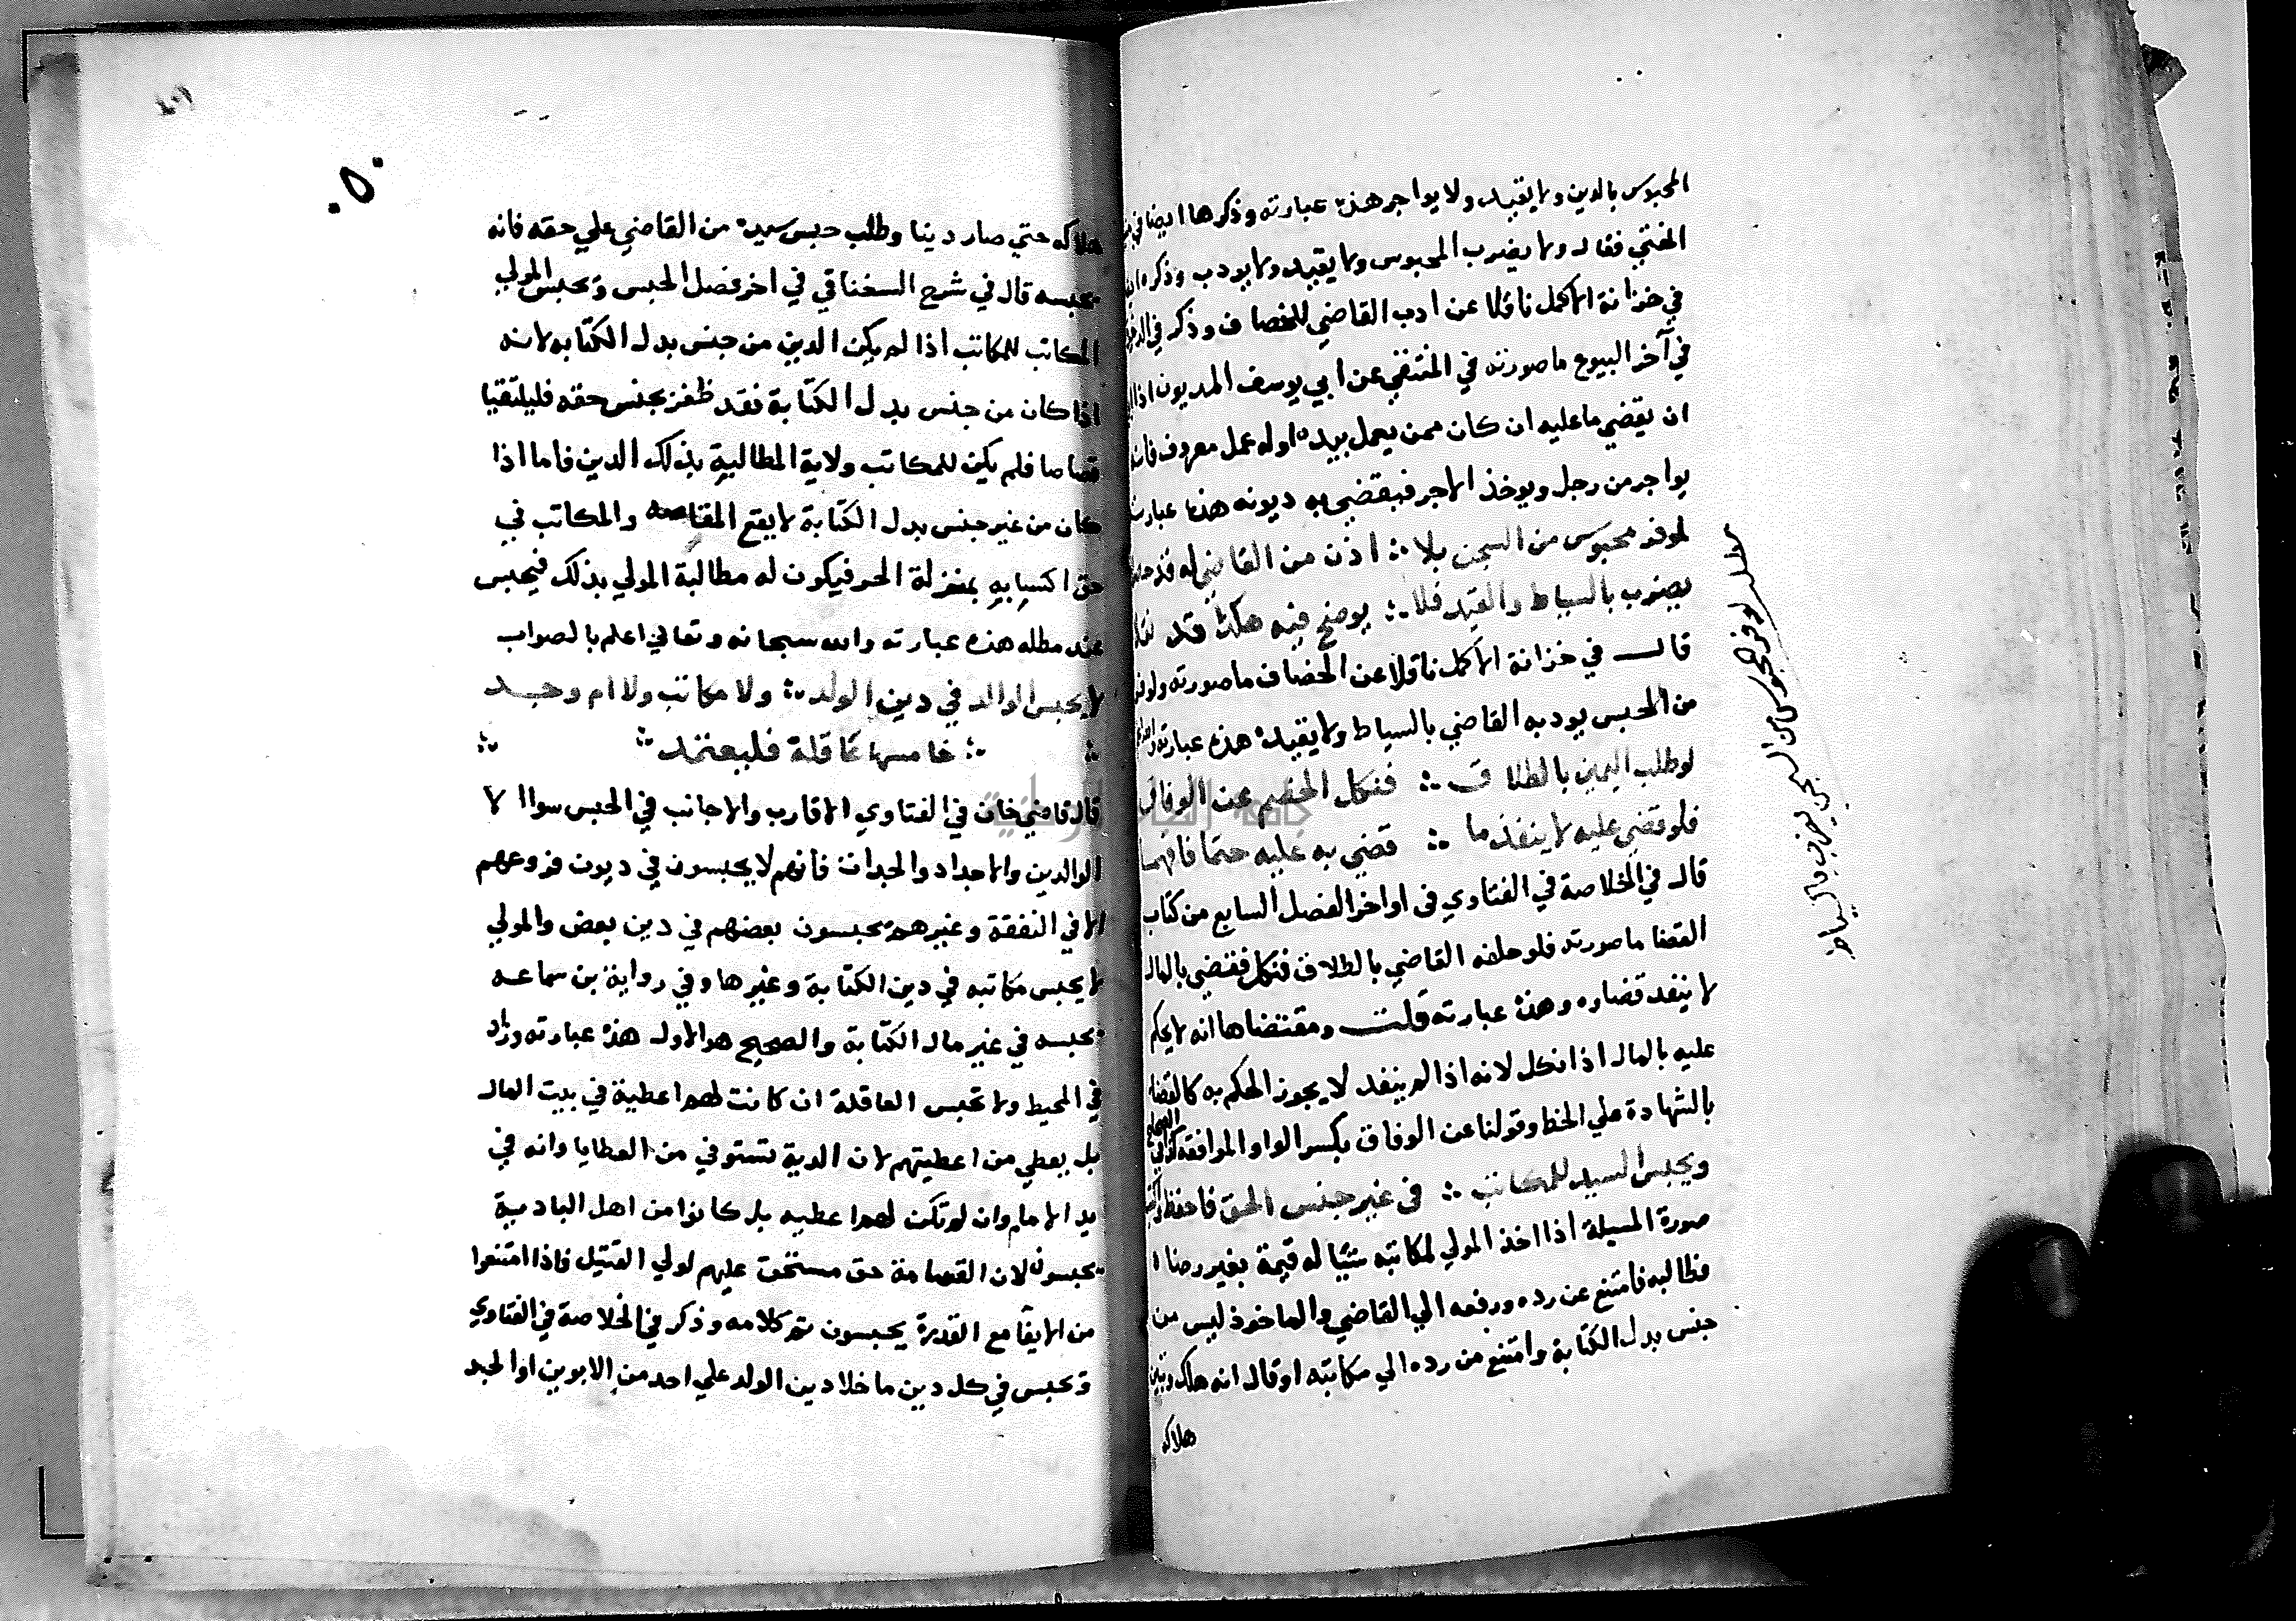 المحبوس بالدين ولا يقيد ولا يواجر هذه عبارته وذكرها ايضا في
المفتي فقال ولا يضرب المحبوس ولا يقيد ولا يودب وذكره
في خزانة الاكمل ناقلا عن ادب القاضي للخصاف وذكر في
في آخر البيوع ما صورته في المنتقي عن ابي يوسف المديون اذا
ان يقضي ما عليه ان كان ممن يعمل بيده اوله عمل معروف فانه
يواجر من رجل ويوخذ الاجر فيقضي به ديونه هذه عبارته
لو فر محبوس من السجن بلا ؞ اذن من القاضي له قد
يضرب بالسياط والقيد فلا ؞ يوضح فيه هكذا قد نقلا
قال في خزانة الاكمل ناقلا عن الخصاف ما صورته ولو فر
من المحبس يودبه القاضي بالسياط ولا يقيده هذه عبارته
لو طلب اليمين بالطلاق ؞ فنكل الخصم عن الوفاق
فلو قضي عليه لا ينفذ ما ؞ قضي به عليه حتما فافهما
قال في الخلاصة في الفتاوي في اواخر الفصل السابع من كتاب
القضا ما صورته فلو حلفه القاضي بالطلاق فنكل فقضي بالمال
لا ينفد قضاوه وهذه عبارته قلت ومقتضاها انه لا يحكم
عليه بالمال اذا نكل لانه اذا لم ينفد لا يجوز الحكم به كالقضا
بالشهادة علي الخط وقولنا عن الوفاق بكسر الواو الموافقة
ويحبس السيد للمكاتب ؞ في غير جنس الحق فاحفظ
صورة المسيلة اذا اخذ المولي لمكاتبه شيًا له قيمة بغير رضا
فطالبه فامتنع عن رده ورفعه الي القاضي والماخوذ ليس من
جنس بدل الكتابة وامتنع من رده الي مكاتبه او قال انه هلك
هلاكه
مطلب لو فر المحبوس من السجن يضرب بالسياط
٥٠
هلاكه حتي صار دينا وطلب حبس سيده من القاضي علي حقه فانه
يحبسه قال في شرح السغناقي في اخر فصل الحبس ويحبس المولي
المكاتب للمكاتب اذا لم يكن الدين من جنس بدل الكتابه لانه
اذا كان من جنس بدل الكتابة فقد ظفر بجنس حقه فليلتقيا
قصاصا فلم يكن للمكاتب ولاية المطالبة بذلك الدين فاما اذا
كان من غير جنس بدل الكتابة لا يقع المقاصه والمكاتب في
حق اكتسابه بمنزلة الحر فيكون له مطالبة المولي بذلك فيحبس
عند مطله هذه عبارته والله سبحانه وتعالي اعلم بالصواب
لا يحبس الوالد في دين الولد ؞ ولا مكاتب ولا ام وجد
؞ خامسها عاقلة فليعتمد ؞
قال قاضي خان في الفتاوي الاقارب والاجانب في الحبس سوا الا
الوالدين والاجداد والجدات فانهم لا يحبسون في ديون فروعهم
الا في النفقة وغيرهم يحبسون بعضهم في دين بعض والمولي
لا يحبس مكاتبه في دين الكتابة وغيرها وفي رواية بن سماعه
يحبسه في غير مال الكتابة والصحيح هو الاول هذه عبارته وزاد
في المحيط ولا تحبس العاقلة ان كانت لهم اعطية في بيت المال
بل يعطي من اعطيتهم لان الدية تستوفي من العطايا وانه في
يد الامام وان لم تكن لهم اعطيه بل كانوا من اهل البادية
يحبسون لان القصامة حق مستحق عليهم لولي القتيل فاذا امتنعوا
من الايفا مع القدرة يحبسون تم كلامه وذكر في الخلاصة في الفتاوي
ويحبس في كل دين ما خلا دين الولد علي احد من الابوين او الجد